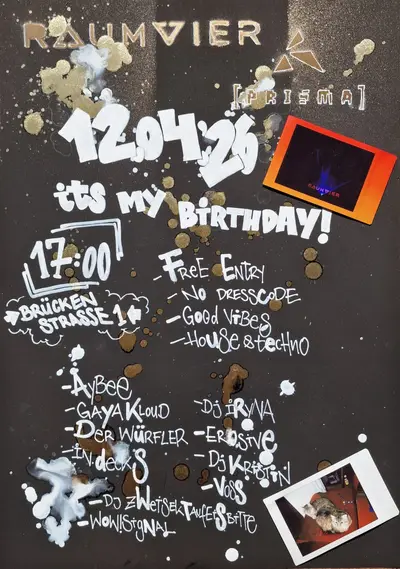 RAUMVIER
[PRISMA]
12.04.26
RAUMVIER
iTS MY BiRTHDAY!
17:00
BRÜCKEN
STRASSE 1
- FREE ENTRY
- NO DRESSCODE
- GOOD ViBES
- HOUSE & techno
- AYBEE
- GAYA KLOUD
- DER WÜRFLER
- iN decKS
- DJ ZWEiSEKTAUFEiSBiTTE
- WOW!SigNAL
- DJ iRYNA
- EROSiVE
- DJ KRiSTiN
- VOSS